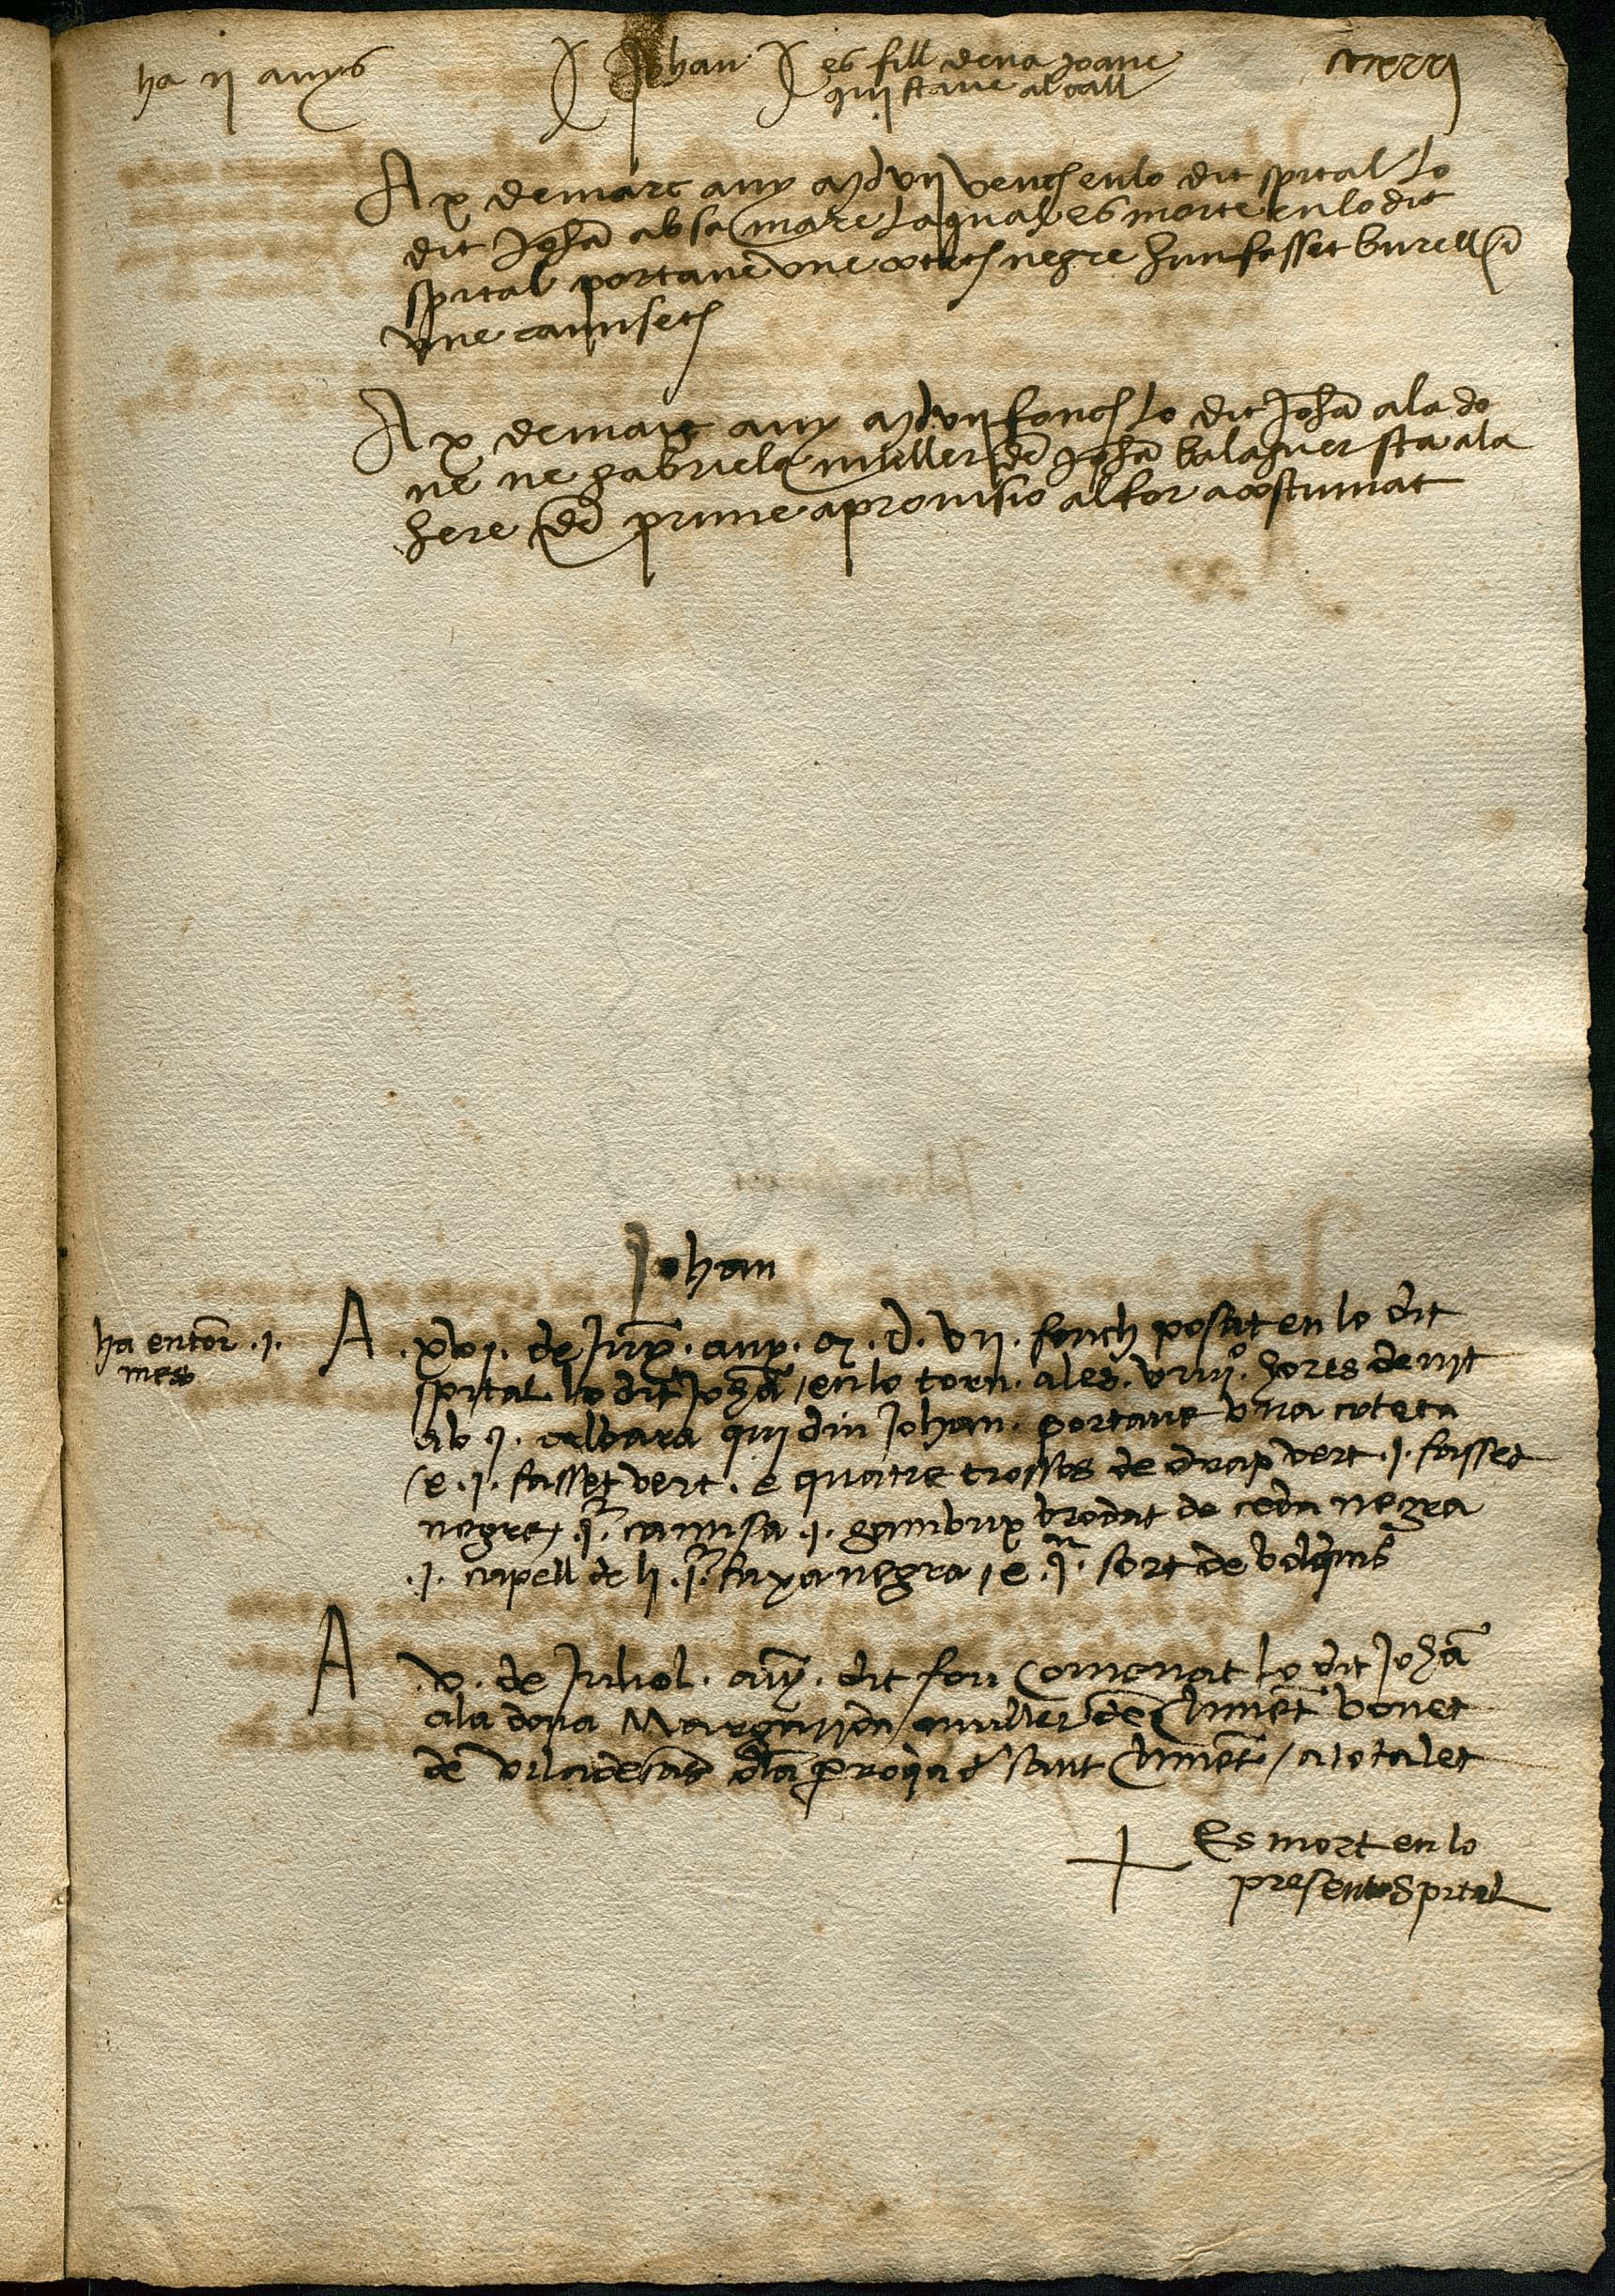 ha ii anys
Johan
es fill dena Joane
qui stave al call
A x de març any mdvii vench en lo dit spital lo
dit Johã ab sa mare la qual es morte en lo dit
spital portave une negre hun fasset burell e
une
A x de maig any mdvii fonch lo dit Johã a la do
ne ne gabriela muller dẽ Johã balaguer sta a la
here dẽ prim a provisio al for acostumat
Johan
ha entorn .j.
mes
A .xvj. de Juny .any. m .d. vii. fonch posat en lo dit
spital lo dit Johã / en lo torn .a les. viiijº. hores de nit
ab .j. albara qui diu Johan. portave una coteta
e .j. fasset vert. e quatre trossos de drap vert .j. fasset
negre, .jª. camisa .j. gambux brodat de ceda negra
.j. capell de li .jª. faxa negra / e .jª. sort de bolquims
A .v. de Juliol. any. dit fou Comenat lo dit Johã
a la dona Margarida muller dẽ Climẽt bonet
de viladecans dẽ la sant Climẽt / a
Es mort en lo
present Spital